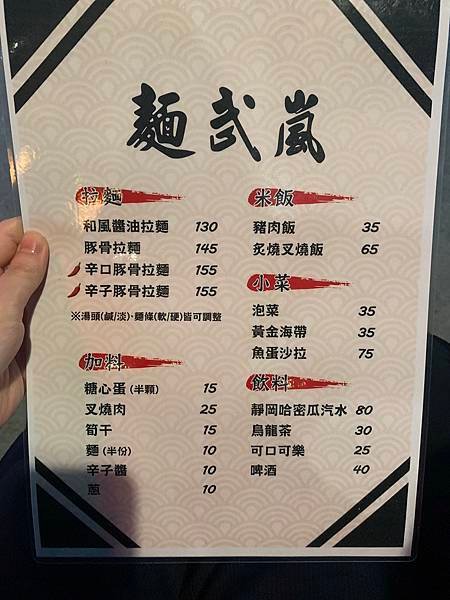 麵武嵐
拉麵
和風醬油拉麵 130
豚骨拉麵 145
辛口豚骨拉麵 155
辛子豚骨拉麵 155
※湯頭(鹹/淡)、麵條(軟/硬)皆可調整
加料
糖心蛋(半顆) 15
叉燒肉 25
筍干 15
麵(半份) 10
辛子醬 10
蔥 10
米飯
豬肉飯 35
炙燒叉燒飯 65
小菜
泡菜 35
黃金海帶 35
魚蛋沙拉 75
飲料
靜岡哈密瓜汽水 80
烏龍茶 30
可口可樂 25
啤酒 40